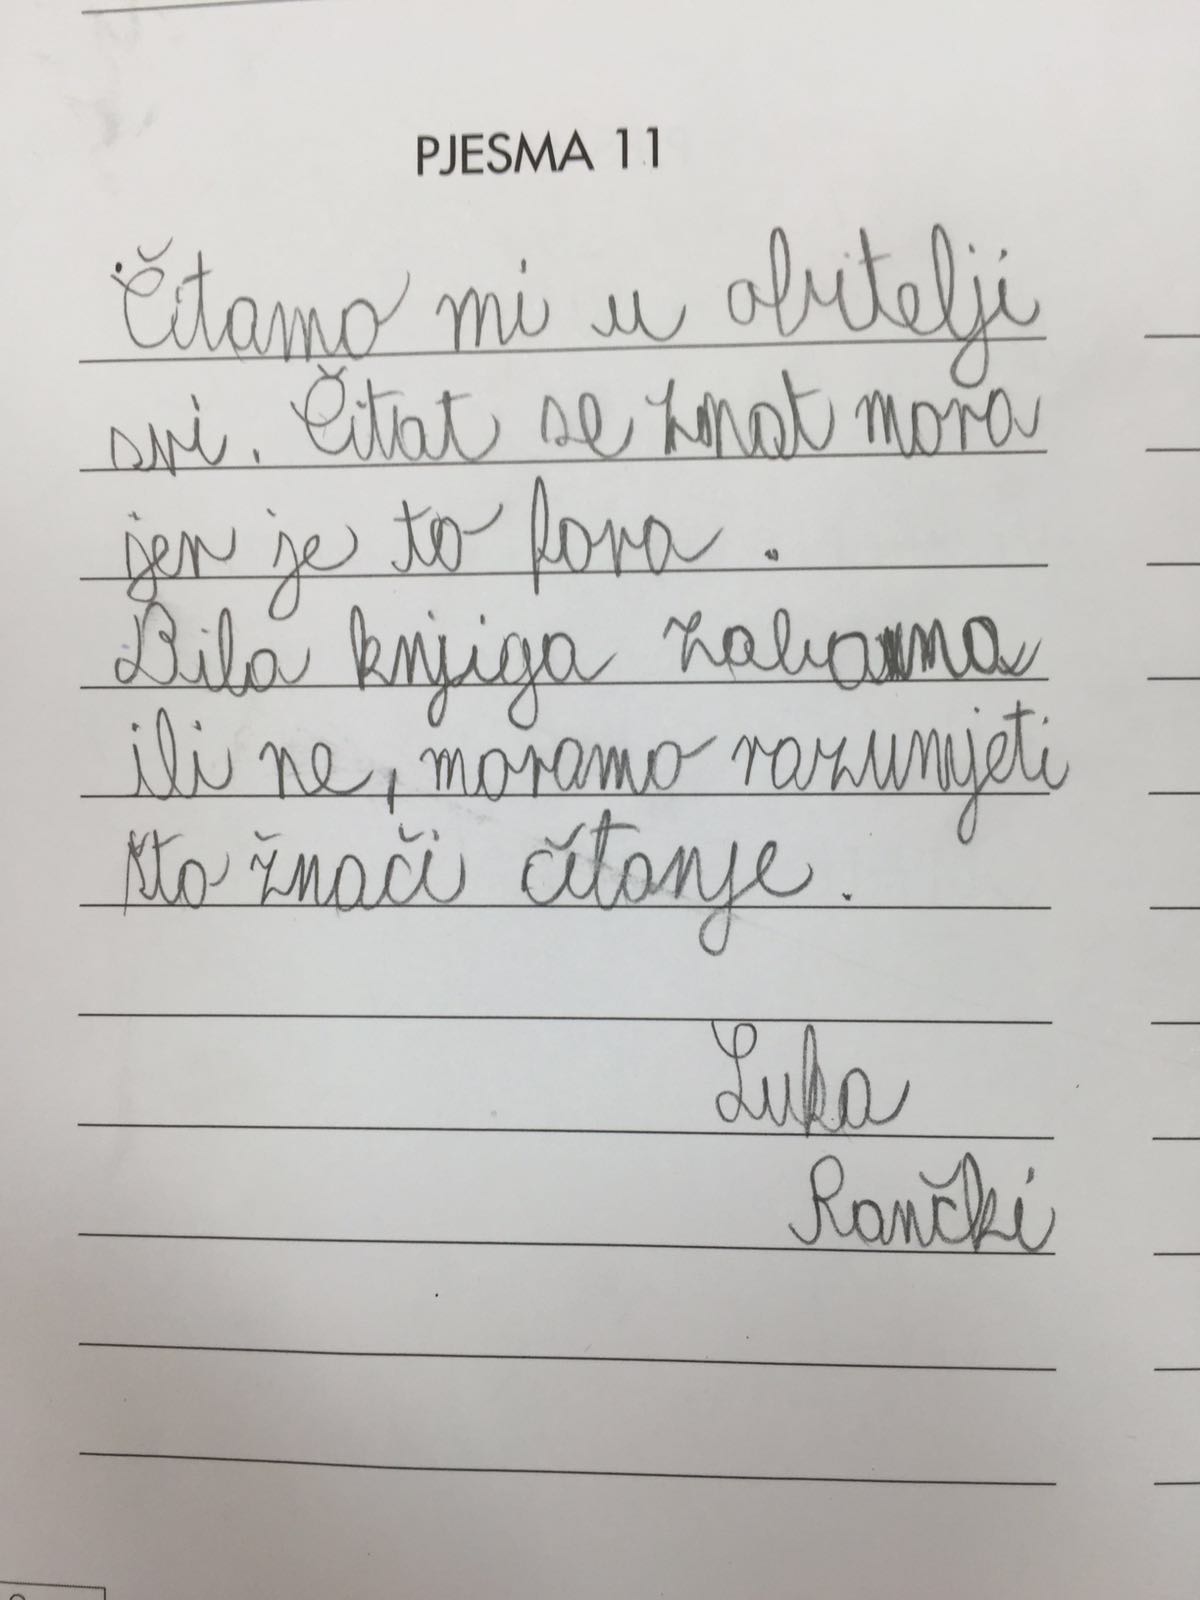 PJESMA 11
Čitamo mi u obitelji
svi. Čitat se znat mora
jer je to fora.
Bila knjiga zabavna
ili ne, moramo razumjeti
što znači čitanje.
Luka
Rančki